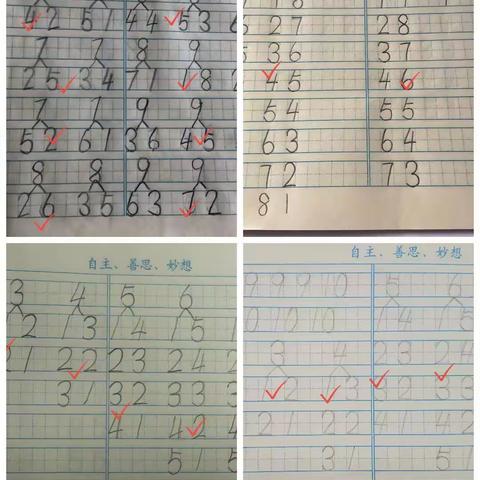 42 51 44 53 6
7 7 8 9
25 34 71 82
7 7 9 9
52 61 36 45
8 8 9 9
26 35 63 72
18
27 28
36 37
45 46
54 55
63 64
72 73
81
自主、善思、妙想
3 4 5 6
2 13 14 15 1
21 22 23 24 2
31 32 33 3
41 42 4
51 5
自主、善思、妙想
9 9 9 10 5 6
10 12 10 14 15
3 4 23 24
12 13 32 33
21 22 41 42
31 51